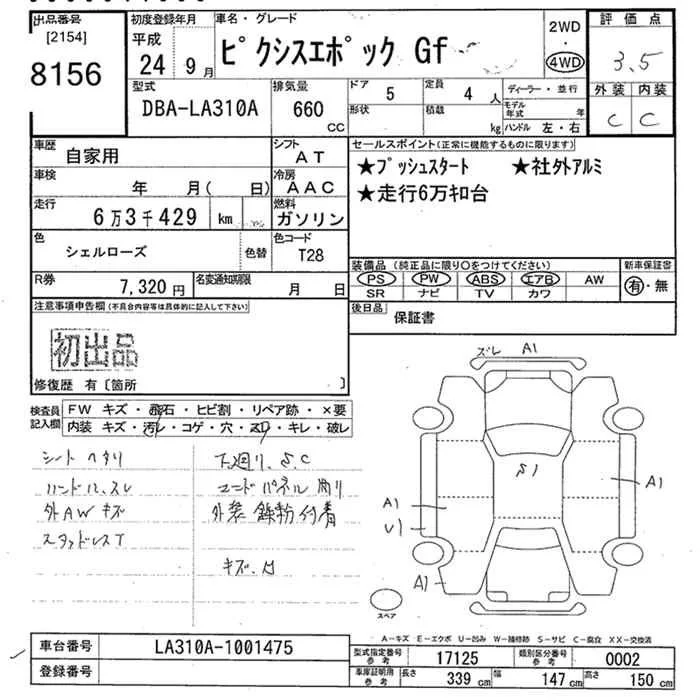 出品番号
[2154]
8156
初度登録年月
平成
24 9月
車名・グレード
ピクシスエポック Gf
2WD
・
4WD
評価点
3.5
外装 内装
C C
型式
DBA-LA310A
排気量
660
CC
ドア 5
形状
定員 4 人
積載 kg
ディーラー・並行
モデル年式 年
ハンドル 左・右
車歴
自家用
シフト
AT
車検
年 月( 日)
冷房
AAC
走行
6万3千429 km
燃料
ガソリン
色
シェルローズ
色替
色コード
T28
R券
7,320円
名変通知期限
月 日
セールスポイント(正常に機能するものに限ります)
★プッシュスタート ★社外アルミ
★走行6万キロ台
装備品(純正品に限り○をつけてください)
PS PW ABS エアB AW
SR ナビ TV カワ
新車保証書
有・無
後日品
保証書
注意事項申告欄(不具合内容等は具体的に記入して下さい)
初出品
修復歴 有〔箇所 〕
検査員記入欄
FW キズ・飛石・ヒビ割・リペア跡・×要
内装 キズ・汚レ・コゲ・穴・スリ・キレ・破レ
シートヘタリ
ハンドル、スレ
外AWキズ
スタッドレスT
下廻り、S.C
コードパネル削り
外装 鉄粉付着
キズ、凹
ズレ A1
S1
A1
A1
U1
A1
スペア
A-キズ E-エクボ U-凹み W-補修跡 S-サビ C-腐食 XX-交換済
車台番号
LA310A-1001475
登録番号
型式指定番号
参考
17125
類別区分番号
参考
0002
車庫証明用
参考
長さ 339 cm
幅 147 cm
高さ 150 cm